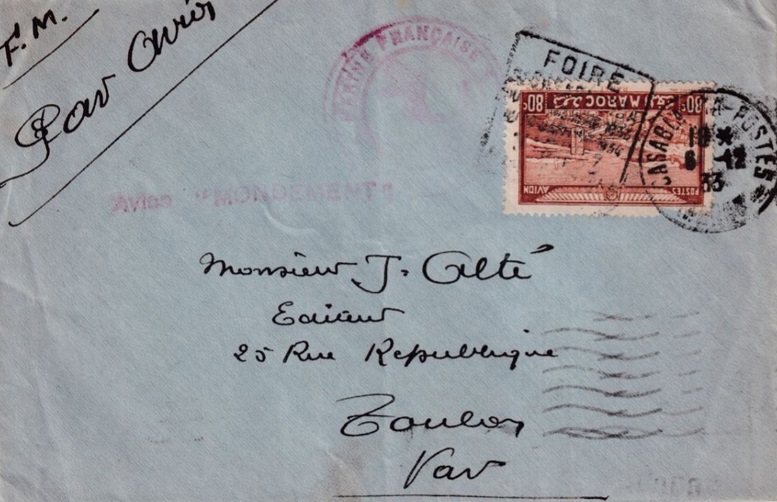 F.M.
Par Avion
MARINE FRANÇAISE
FOIRE
80c MAROC 80c
POSTES AVION
CASABLANCA-POSTES
19 *
6 -12
33
Aviso "MONDEMENT"
Monsieur J. Alté
Editeur
25 Rue République
Toulon
Var